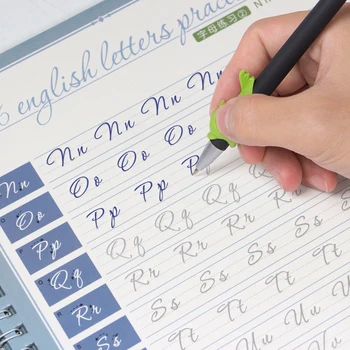 6 english letters prac
字母练习②
Nn Nn Nn Nn Nn
Oo Oo Oo Oo
Pp Pp Pp P
Qq Qq Qq Qq
Rr Rr Rr Rr Rr
Ss Ss Ss Ss Ss
Tt Tt Tt Tt
Uu Uu Uu